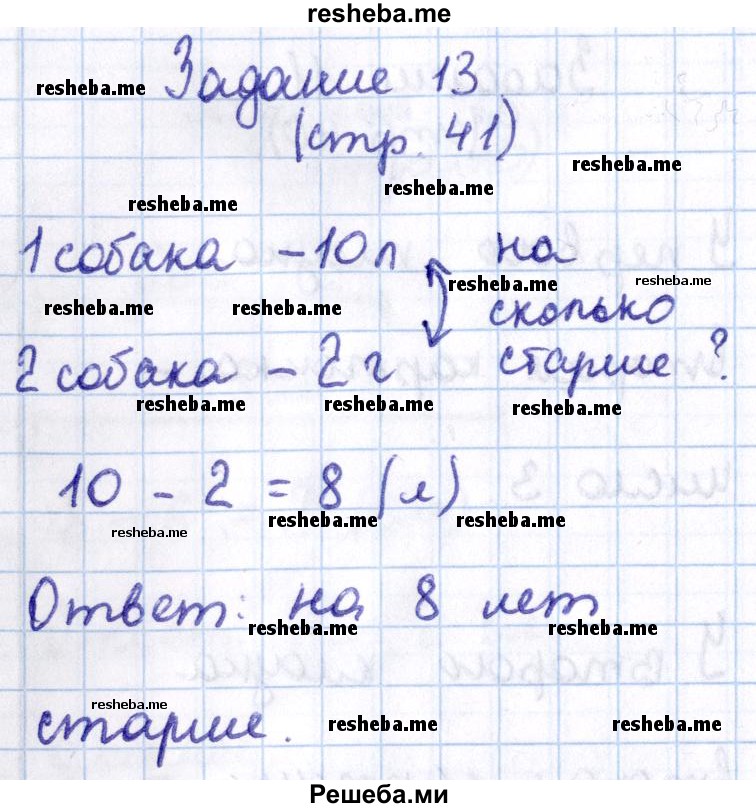 resheba.me
resheba.me Задание 13
(стр. 41)
resheba.me
resheba.me
resheba.me
1 собака – 10 л на
resheba.me resheba.me
resheba.me resheba.me сколько
2 собака – 2 г старше?
resheba.me resheba.me resheba.me
10 - 2 = 8 (л)
resheba.me resheba.me resheba.me
Ответ: на 8 лет
resheba.me resheba.me
resheba.me
старше. resheba.me resheba.me
Решеба.ми